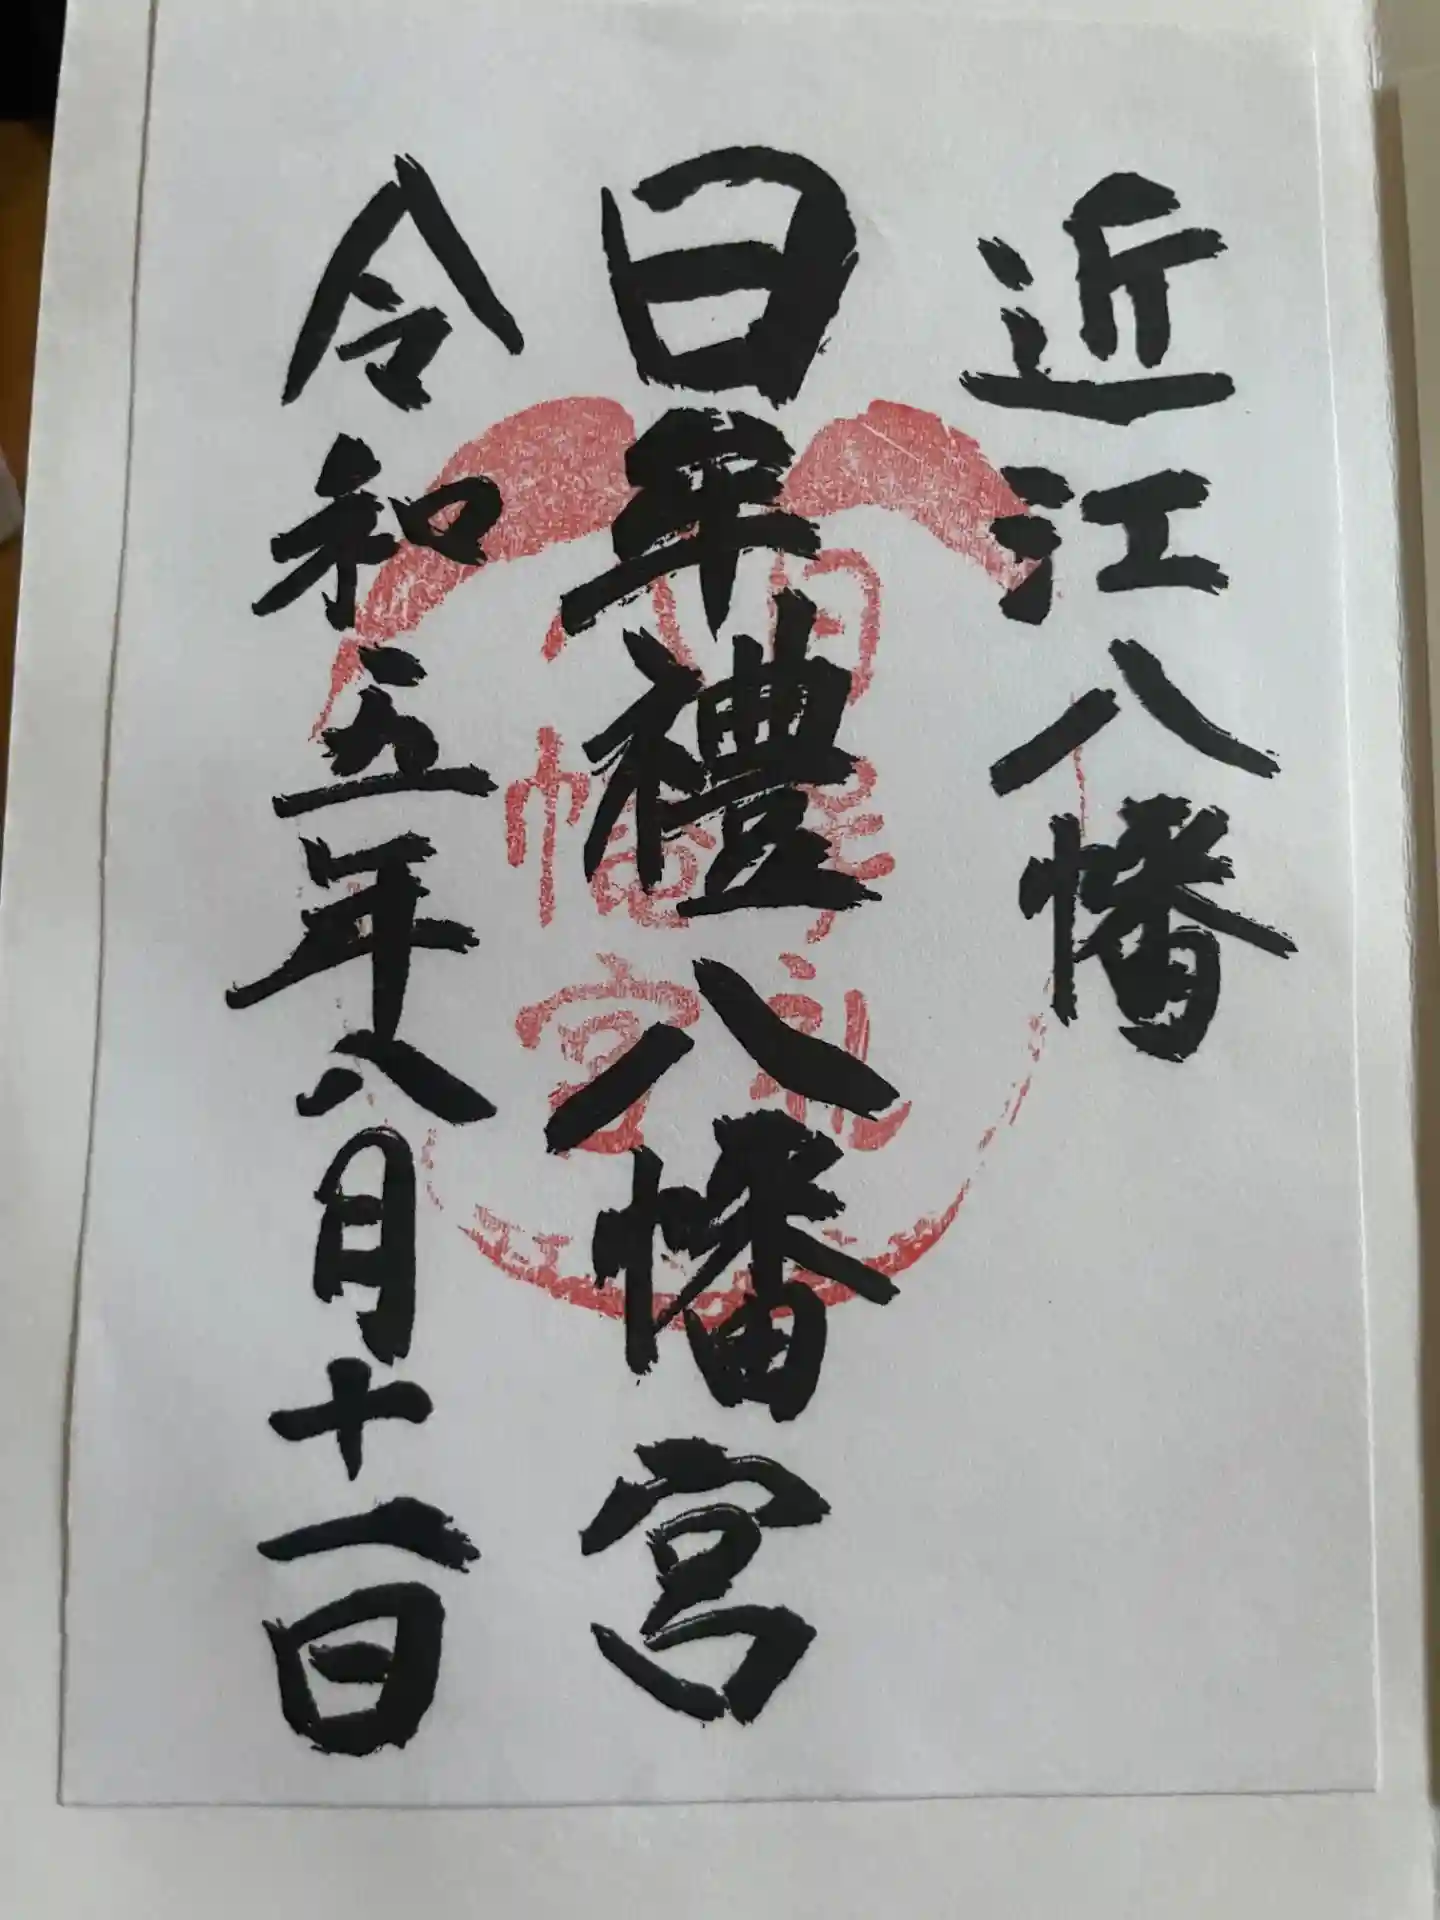 近江八幡
日牟禮八幡宮
令和五年八月十一日
日牟礼
八幡宮